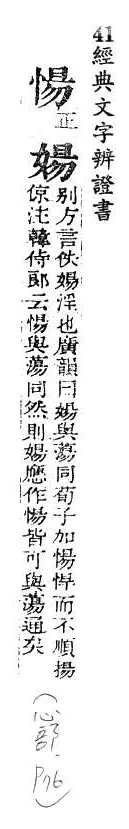 41經典文字辨證書
愓正婸
別方言佚婸淫也廣韻曰婸與蕩同荀子加愓悍而不順揚
倞注韓侍郎云愓與蕩同然則婸應作愓皆可與蕩通矣
(心部 P76)